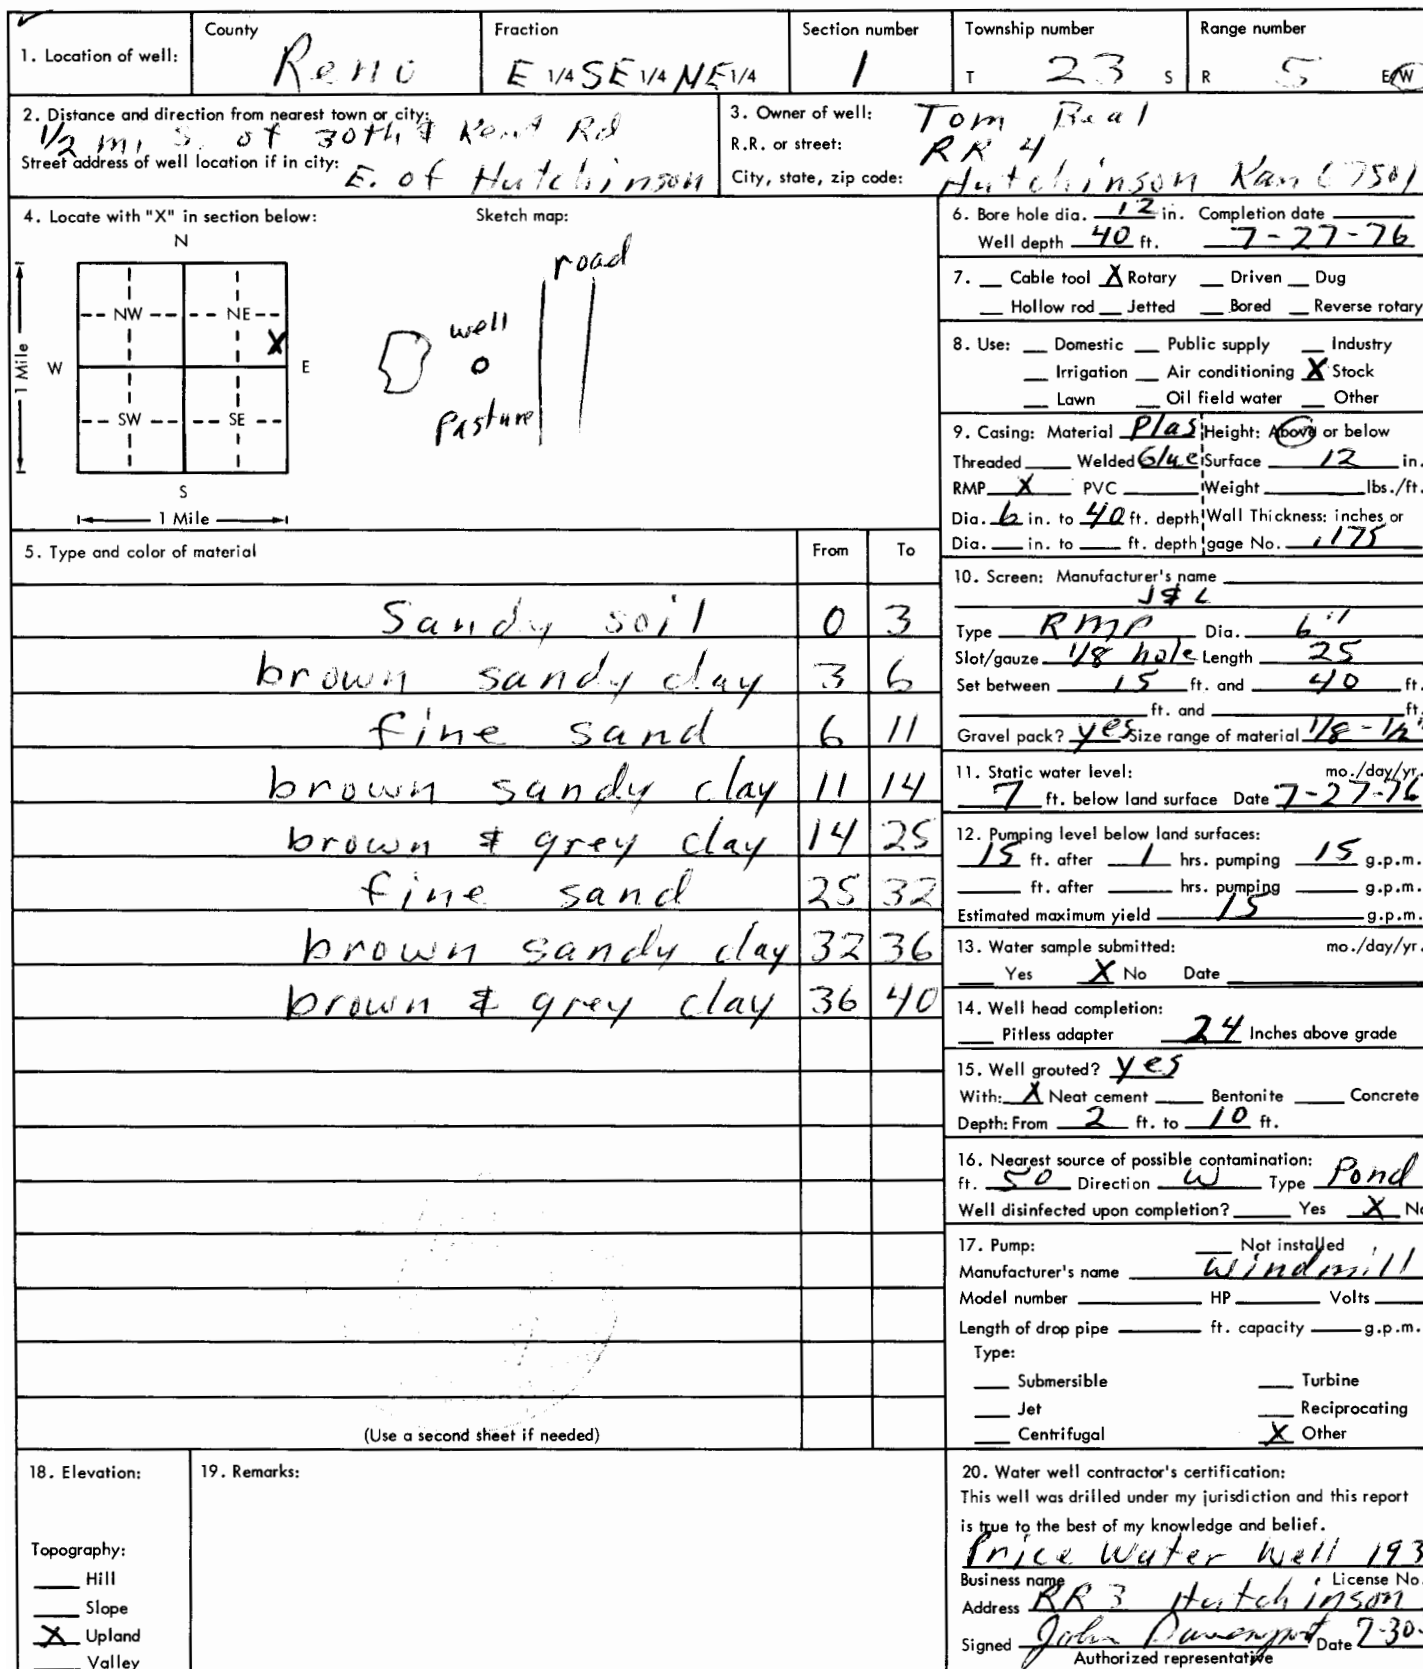 1. Location of well:
County
Reno
Fraction
E 1/4 SE 1/4 NE 1/4
Section number
1
Township number
T 23 S
Range number
R 5 E/W
2. Distance and direction from nearest town or city:
1/2 mi S. of 30th & Kent Rd
Street address of well location if in city:
E. of Hutchinson
3. Owner of well: Tom Beal
R.R. or street: RR 4
City, state, zip code: Hutchinson Kan 67501
4. Locate with "X" in section below:
N
NW NE
X
W E
SW SE
S
1 Mile
1 Mile
Sketch map:
road
well
pasture
5. Type and color of material From To
Sandy soil 0 3
brown sandy clay 3 6
fine sand 6 11
brown sandy clay 11 14
brown & grey clay 14 25
fine sand 25 32
brown sandy clay 32 36
brown & grey clay 36 40
(Use a second sheet if needed)
6. Bore hole dia. 12 in. Completion date
Well depth 40 ft. 7-27-76
7. __ Cable tool X Rotary __ Driven __ Dug
__ Hollow rod __ Jetted __ Bored __ Reverse rotary
8. Use: __ Domestic __ Public supply __ Industry
__ Irrigation __ Air conditioning X Stock
__ Lawn __ Oil field water __ Other
9. Casing: Material Plas Height: Above or below
Threaded ___ Welded Glue Surface 12 in.
RMP X PVC ___ Weight ___ lbs./ft.
Dia. 6 in. to 40 ft. depth Wall Thickness: inches or
Dia. ___ in. to ___ ft. depth gage No. .175
10. Screen: Manufacturer's name
J & L
Type RMP Dia. 6"
Slot/gauze 1/8 hole Length 25
Set between 15 ft. and 40 ft.
___ ft. and ___ ft.
Gravel pack? yes Size range of material 1/8 - 1/2"
11. Static water level: mo./day/yr.
7 ft. below land surface Date 7-27-76
12. Pumping level below land surfaces:
15 ft. after 1 hrs. pumping 15 g.p.m.
___ ft. after ___ hrs. pumping ___ g.p.m.
Estimated maximum yield 15 g.p.m.
13. Water sample submitted: mo./day/yr.
__ Yes X No Date ___
14. Well head completion:
__ Pitless adapter 24 Inches above grade
15. Well grouted? yes
With: X Neat cement ___ Bentonite ___ Concrete
Depth: From 2 ft. to 10 ft.
16. Nearest source of possible contamination:
ft. 50 Direction W Type Pond
Well disinfected upon completion? ___ Yes X No
17. Pump: __ Not installed
Manufacturer's name Windmill
Model number ___ HP ___ Volts ___
Length of drop pipe ___ ft. capacity ___ g.p.m.
Type:
__ Submersible __ Turbine
__ Jet __ Reciprocating
__ Centrifugal X Other
18. Elevation:
Topography:
__ Hill
__ Slope
X Upland
__ Valley
19. Remarks:
20. Water well contractor's certification:
This well was drilled under my jurisdiction and this report
is true to the best of my knowledge and belief.
Price Water Well 193
Business name License No.
Address RR 3 Hutchinson
Signed John Davenport Date 7-30-
Authorized representative